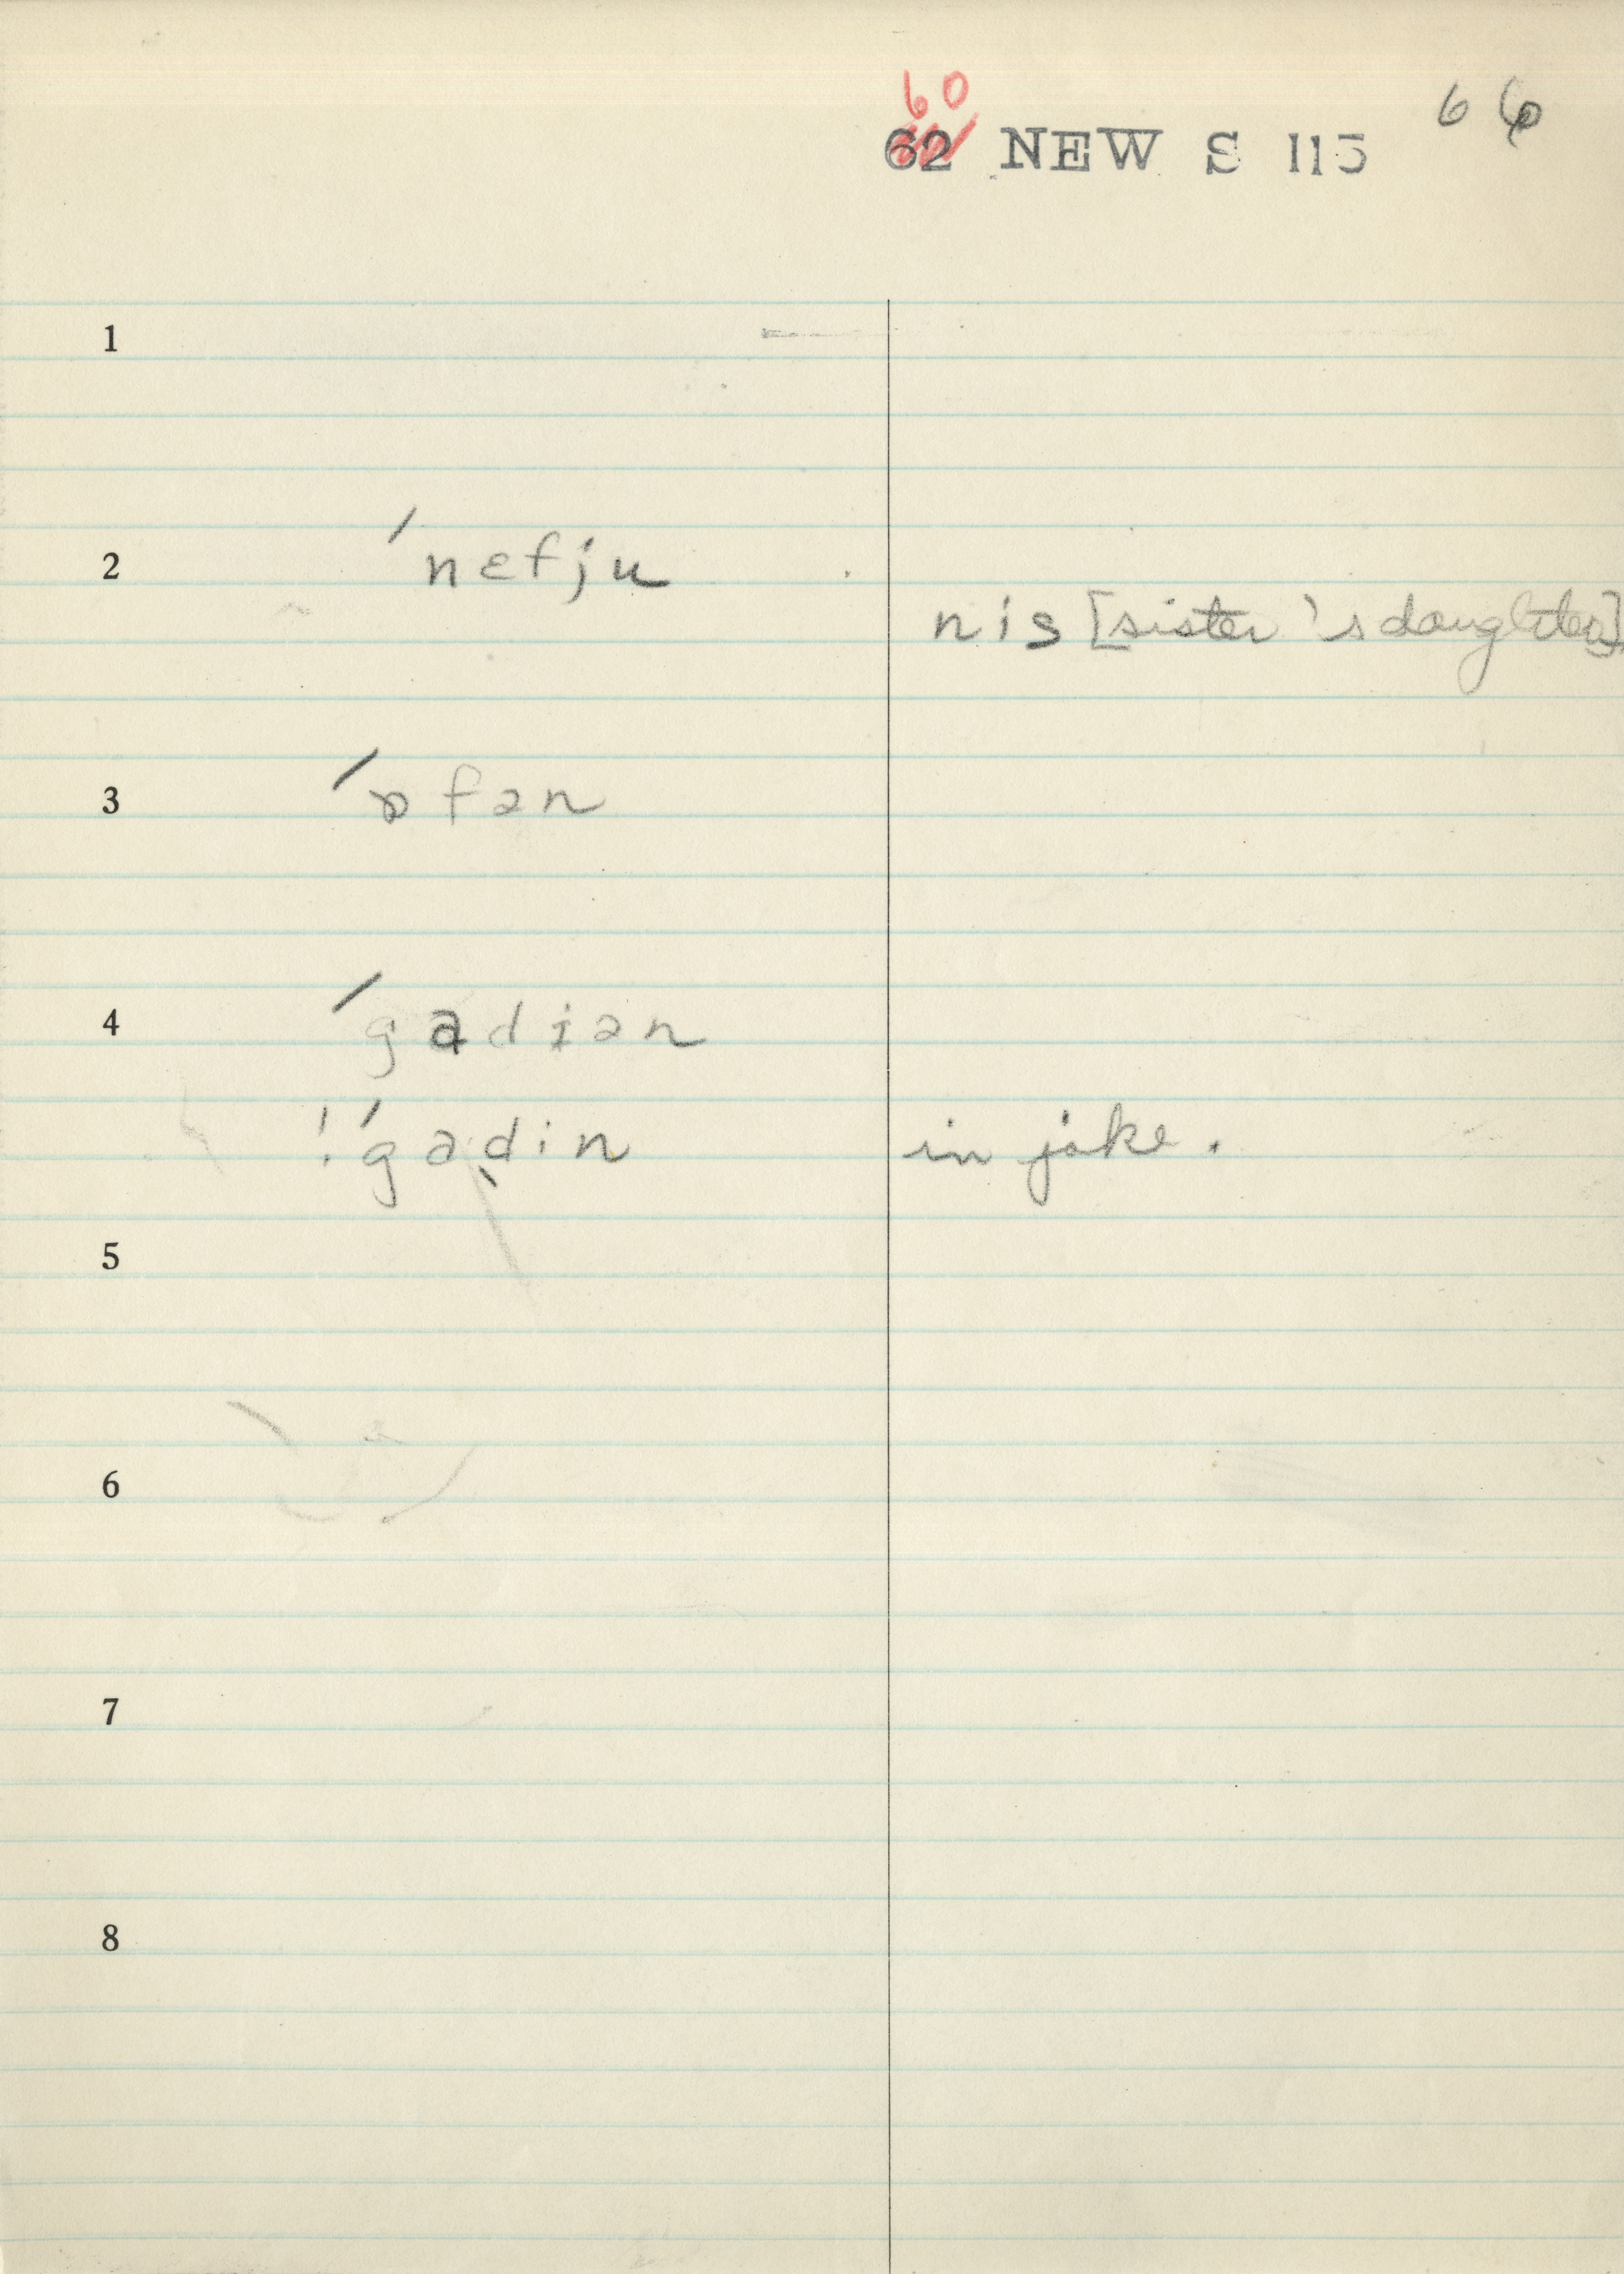 60
62 NEW S 115 66
1
2 ˊnɛfju
nis [sister's daughter]
3 ˊɒfən
4 ˊgadiən
! ˊgadin in joke.
5
6
7
8